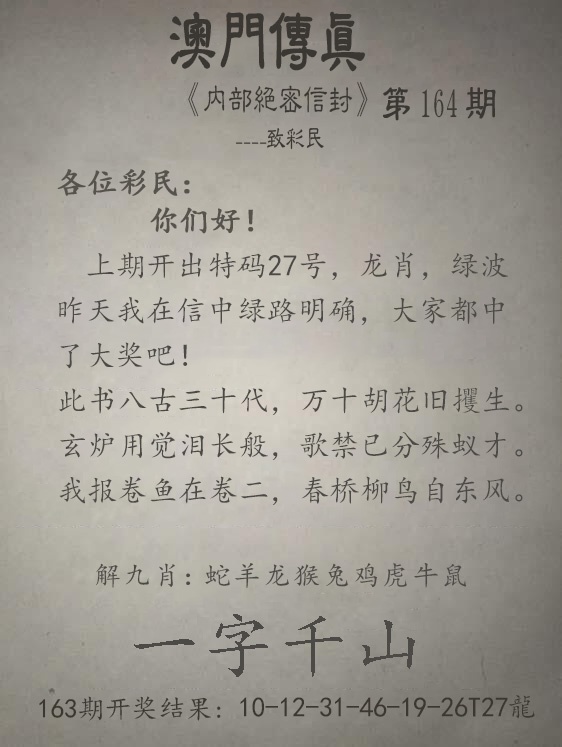 澳門傳眞
《内部絕密信封》第164期
----致彩民
各位彩民：
你们好！
上期开出特码27号，龙肖，绿波
昨天我在信中绿路明确，大家都中
了大奖吧！
此书八古三十代，万十胡花旧攫生。
玄炉用觉泪长般，歌禁已分殊蚁才。
我报卷鱼在卷二，春桥柳鸟自东风。
解九肖：蛇羊龙猴兔鸡虎牛鼠
一字千山
163期开奖结果：10-12-31-46-19-26T27龍